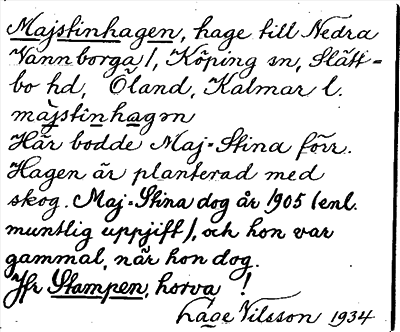 Majstinhagen, hage till Nedra
Vannborga/, Köping sn, Slätt-
bo hd, Öland, Kalmar l.
màjstìnhagən
Här bodde Maj-Stina förr.
Hagen är planterad med
skog. Maj-Stina dog år 1905 (enl.
muntlig uppjift), och hon var
gammal, när hon dog.
Jfr Stampen, horva !
Lage Nilsson 1934